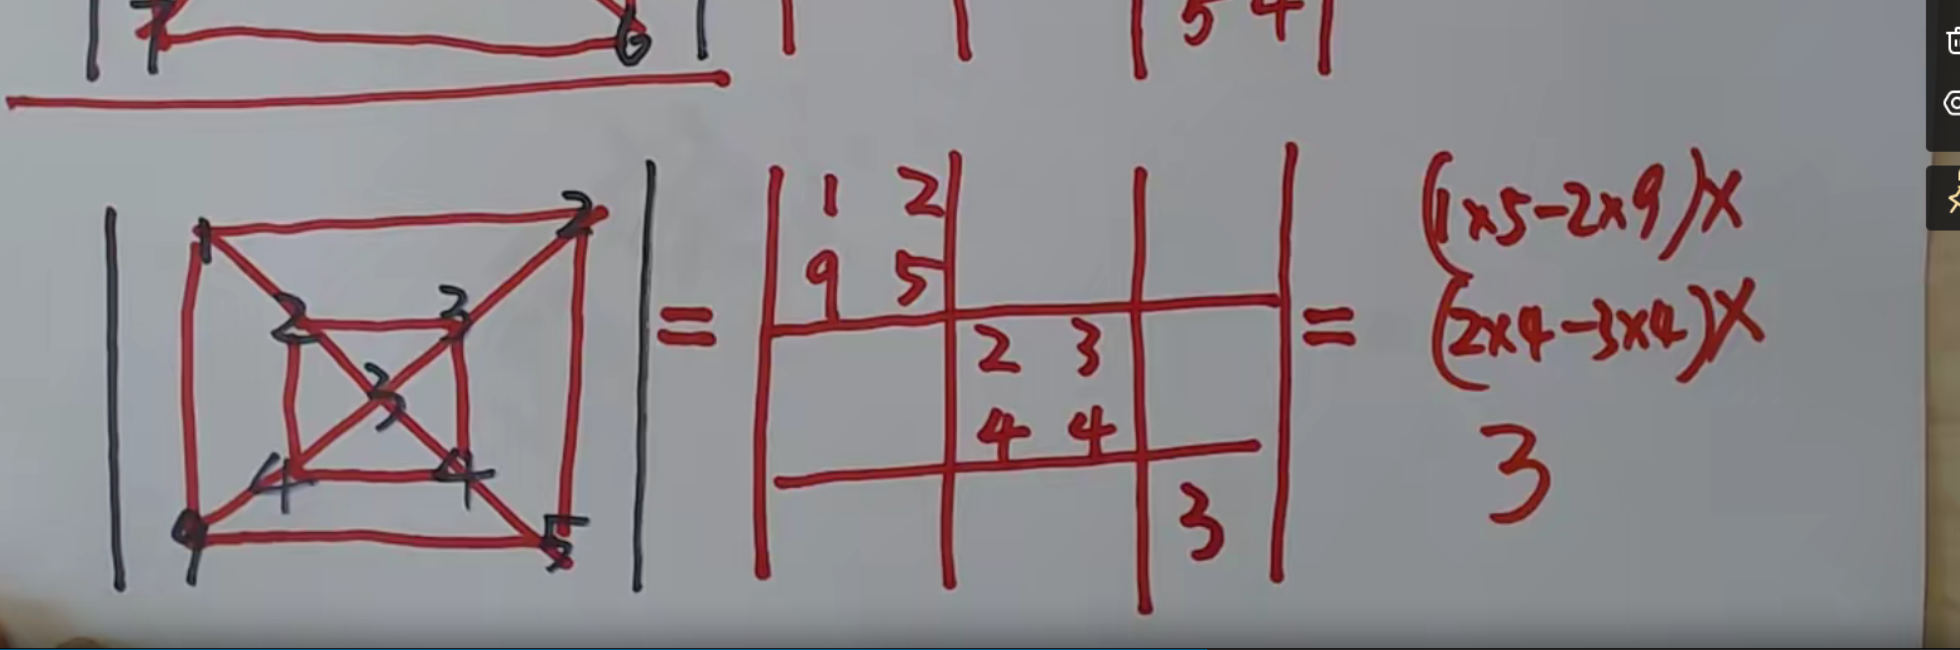 7 6
5 4
1 2
2 3
3
4 4
9 5
=
1 2
9 5
2 3
4 4
3
=
(1×5-2×9)×
(2×4-3×4)×
3